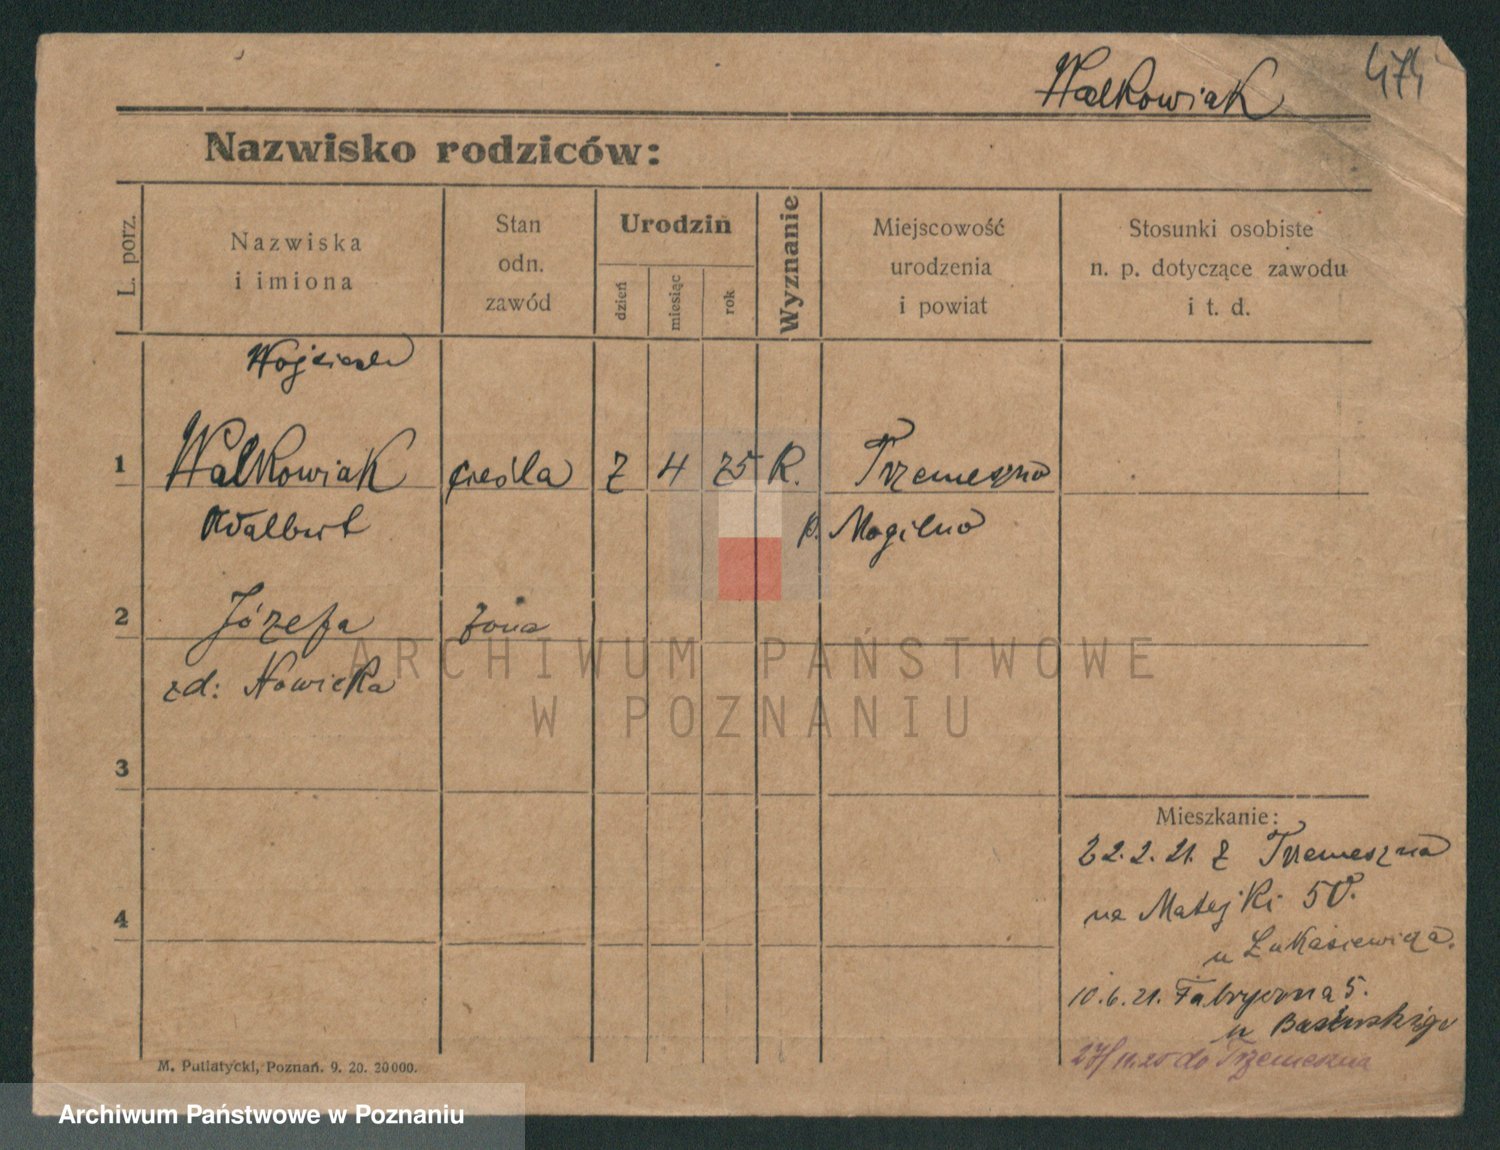 Walkowiak 474
Nazwisko rodziców:
L. porz.
Nazwiska
i imiona
Stan
odn.
zawód
Urodzin
dzień
miesiąc
rok
Wyznanie
Miejscowość
urodzenia
i powiat
Stosunki osobiste
n. p. dotyczące zawodu
i t. d.
Wojciech
1 Walkowiak cieśla 2 4 75 R. Trzemeszno
Walbert p. Mogilno
2 Józefa żona
zd: Nowicka
3
4
Mieszkanie:
22.2.21. z Trzemeszna
na Matejki 50.
u Łukasiewicza.
10.6.21. Fabryczna 5.
u
do Trzemeszna
M. Putiatycki, Poznań. 9. 20. 20000.
ARCHIWUM PAŃSTWOWE
W POZNANIU
Archiwum Państwowe w Poznaniu